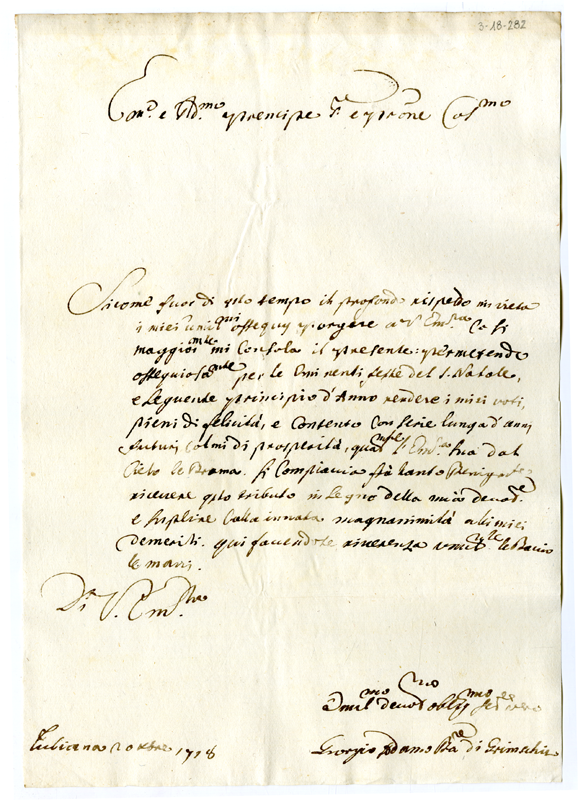 3-18-282
Em.o e Rd.mo Prencipe S.r e Prone Col.mo
Sicome fuor di q̃sto tempo il profondo rispedo mi vieta
i miei umil.mi ossequy porgere a V. Em.za Cosi
maggior.mte mi Consola il presente: permetendo
ossequiosa.mte per le Eminenti feste del S. Natale,
e seguente principio d'Anno rendere i miei voti,
pieni di felicità, e Contento Con serie lunga d'anni
futuri Colmi di prosperità, qua V. Em.za sua dal
Cielo le Brama. Si Compiacia frà tanto Benigna
ricevere q̃sto tributo in segno della mia devot.e
e suplire Colla innata magnanimità alli miei
demeriti. qui facendole riverenza umil.te le Bacio
le mani.
Di V. Em.za
Umil.mo devot.mo oblig.mo ser.re vero
Giorgio Adamo Ba.e di Grimschiz
Juliana 20 Xbre 1718